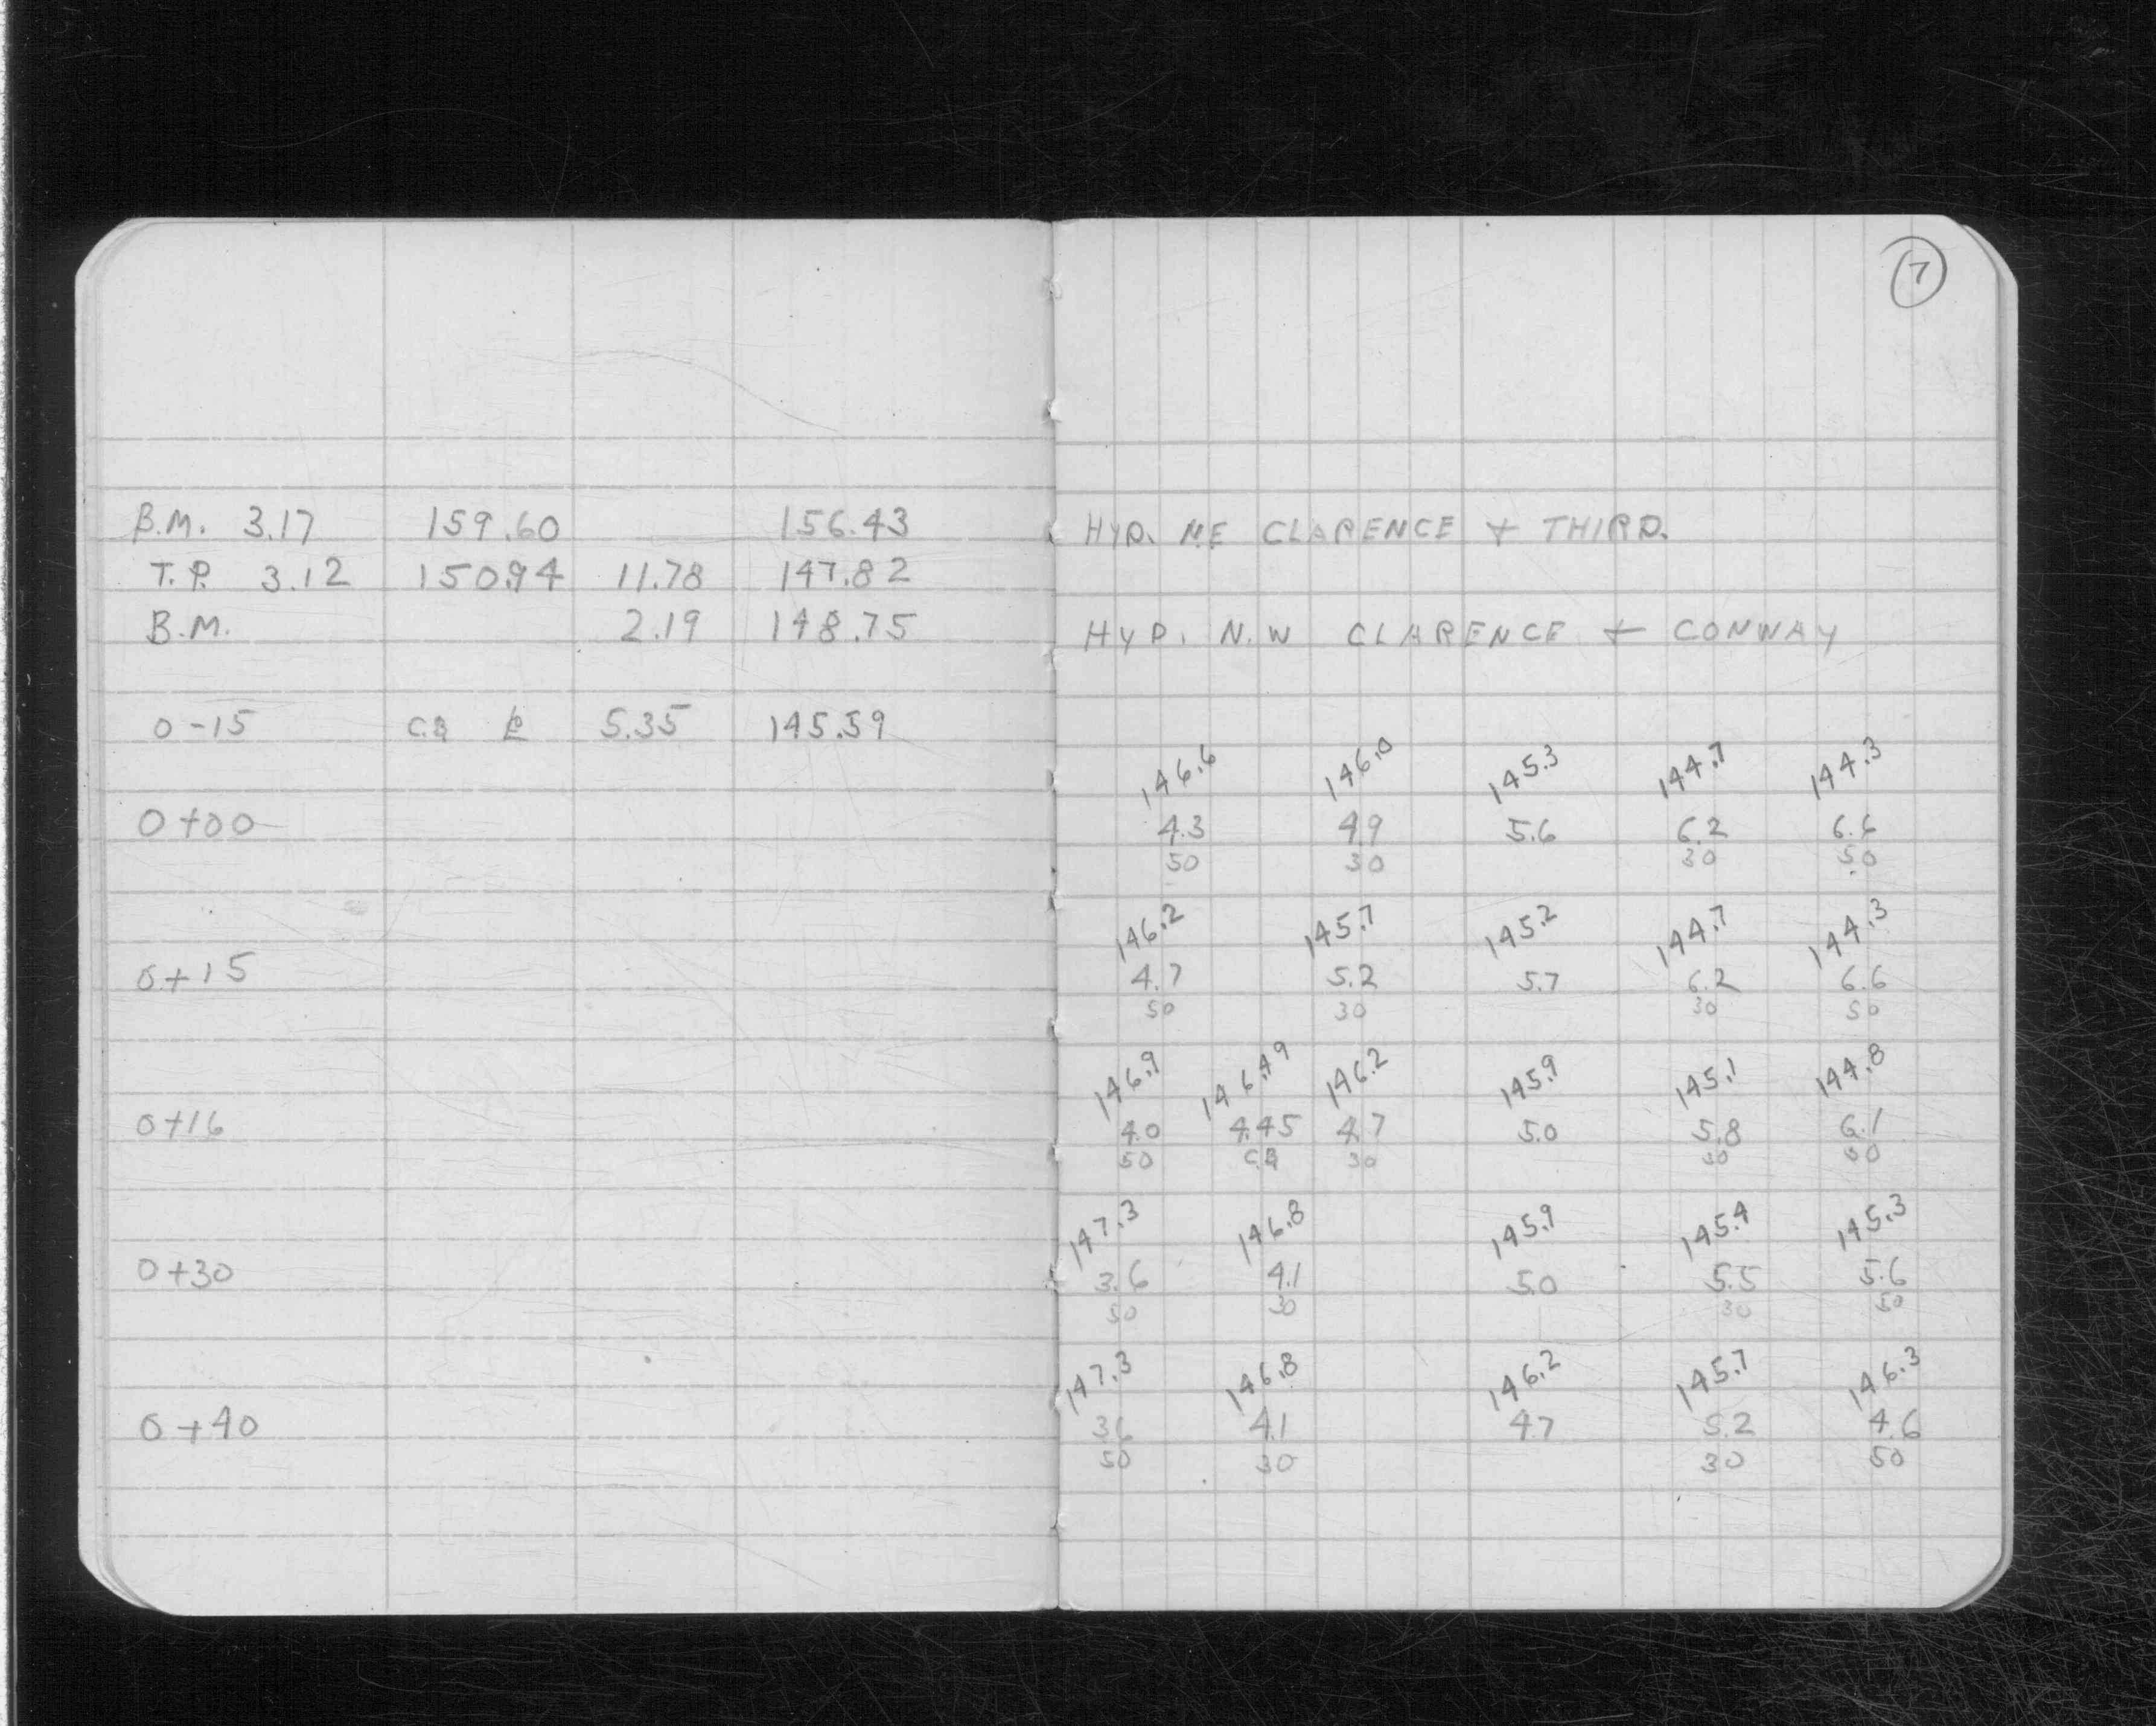 7
B.M. 3.17 159.60 156.43 HYD. NE CLARENCE + THIRD.
T.P. 3.12 150.94 11.78 147.82
B.M. 2.19 148.75 HYD. N.W CLARENCE + CONWAY
0-15 C.B 5.35 145.59
146.6 146.0 145.3 144.7 144.3
0+00 4.3 4.9 5.6 6.2 6.6
50 30 30 50
146.2 145.7 145.2 144.7 144.3
0+15 4.7 5.2 5.7 6.2 6.6
50 30 30 50
146.9 146.49 146.2 145.9 145.1 144.8
0+16 4.0 4.45 4.7 5.0 5.8 6.1
50 C.B 30 30 50
147.3 146.8 145.9 145.4 145.3
0+30 3.6 4.1 5.0 5.5 5.6
50 30 30 50
147.3 146.8 146.2 145.7 146.3
0+40 3.6 4.1 4.7 5.2 4.6
50 30 30 50